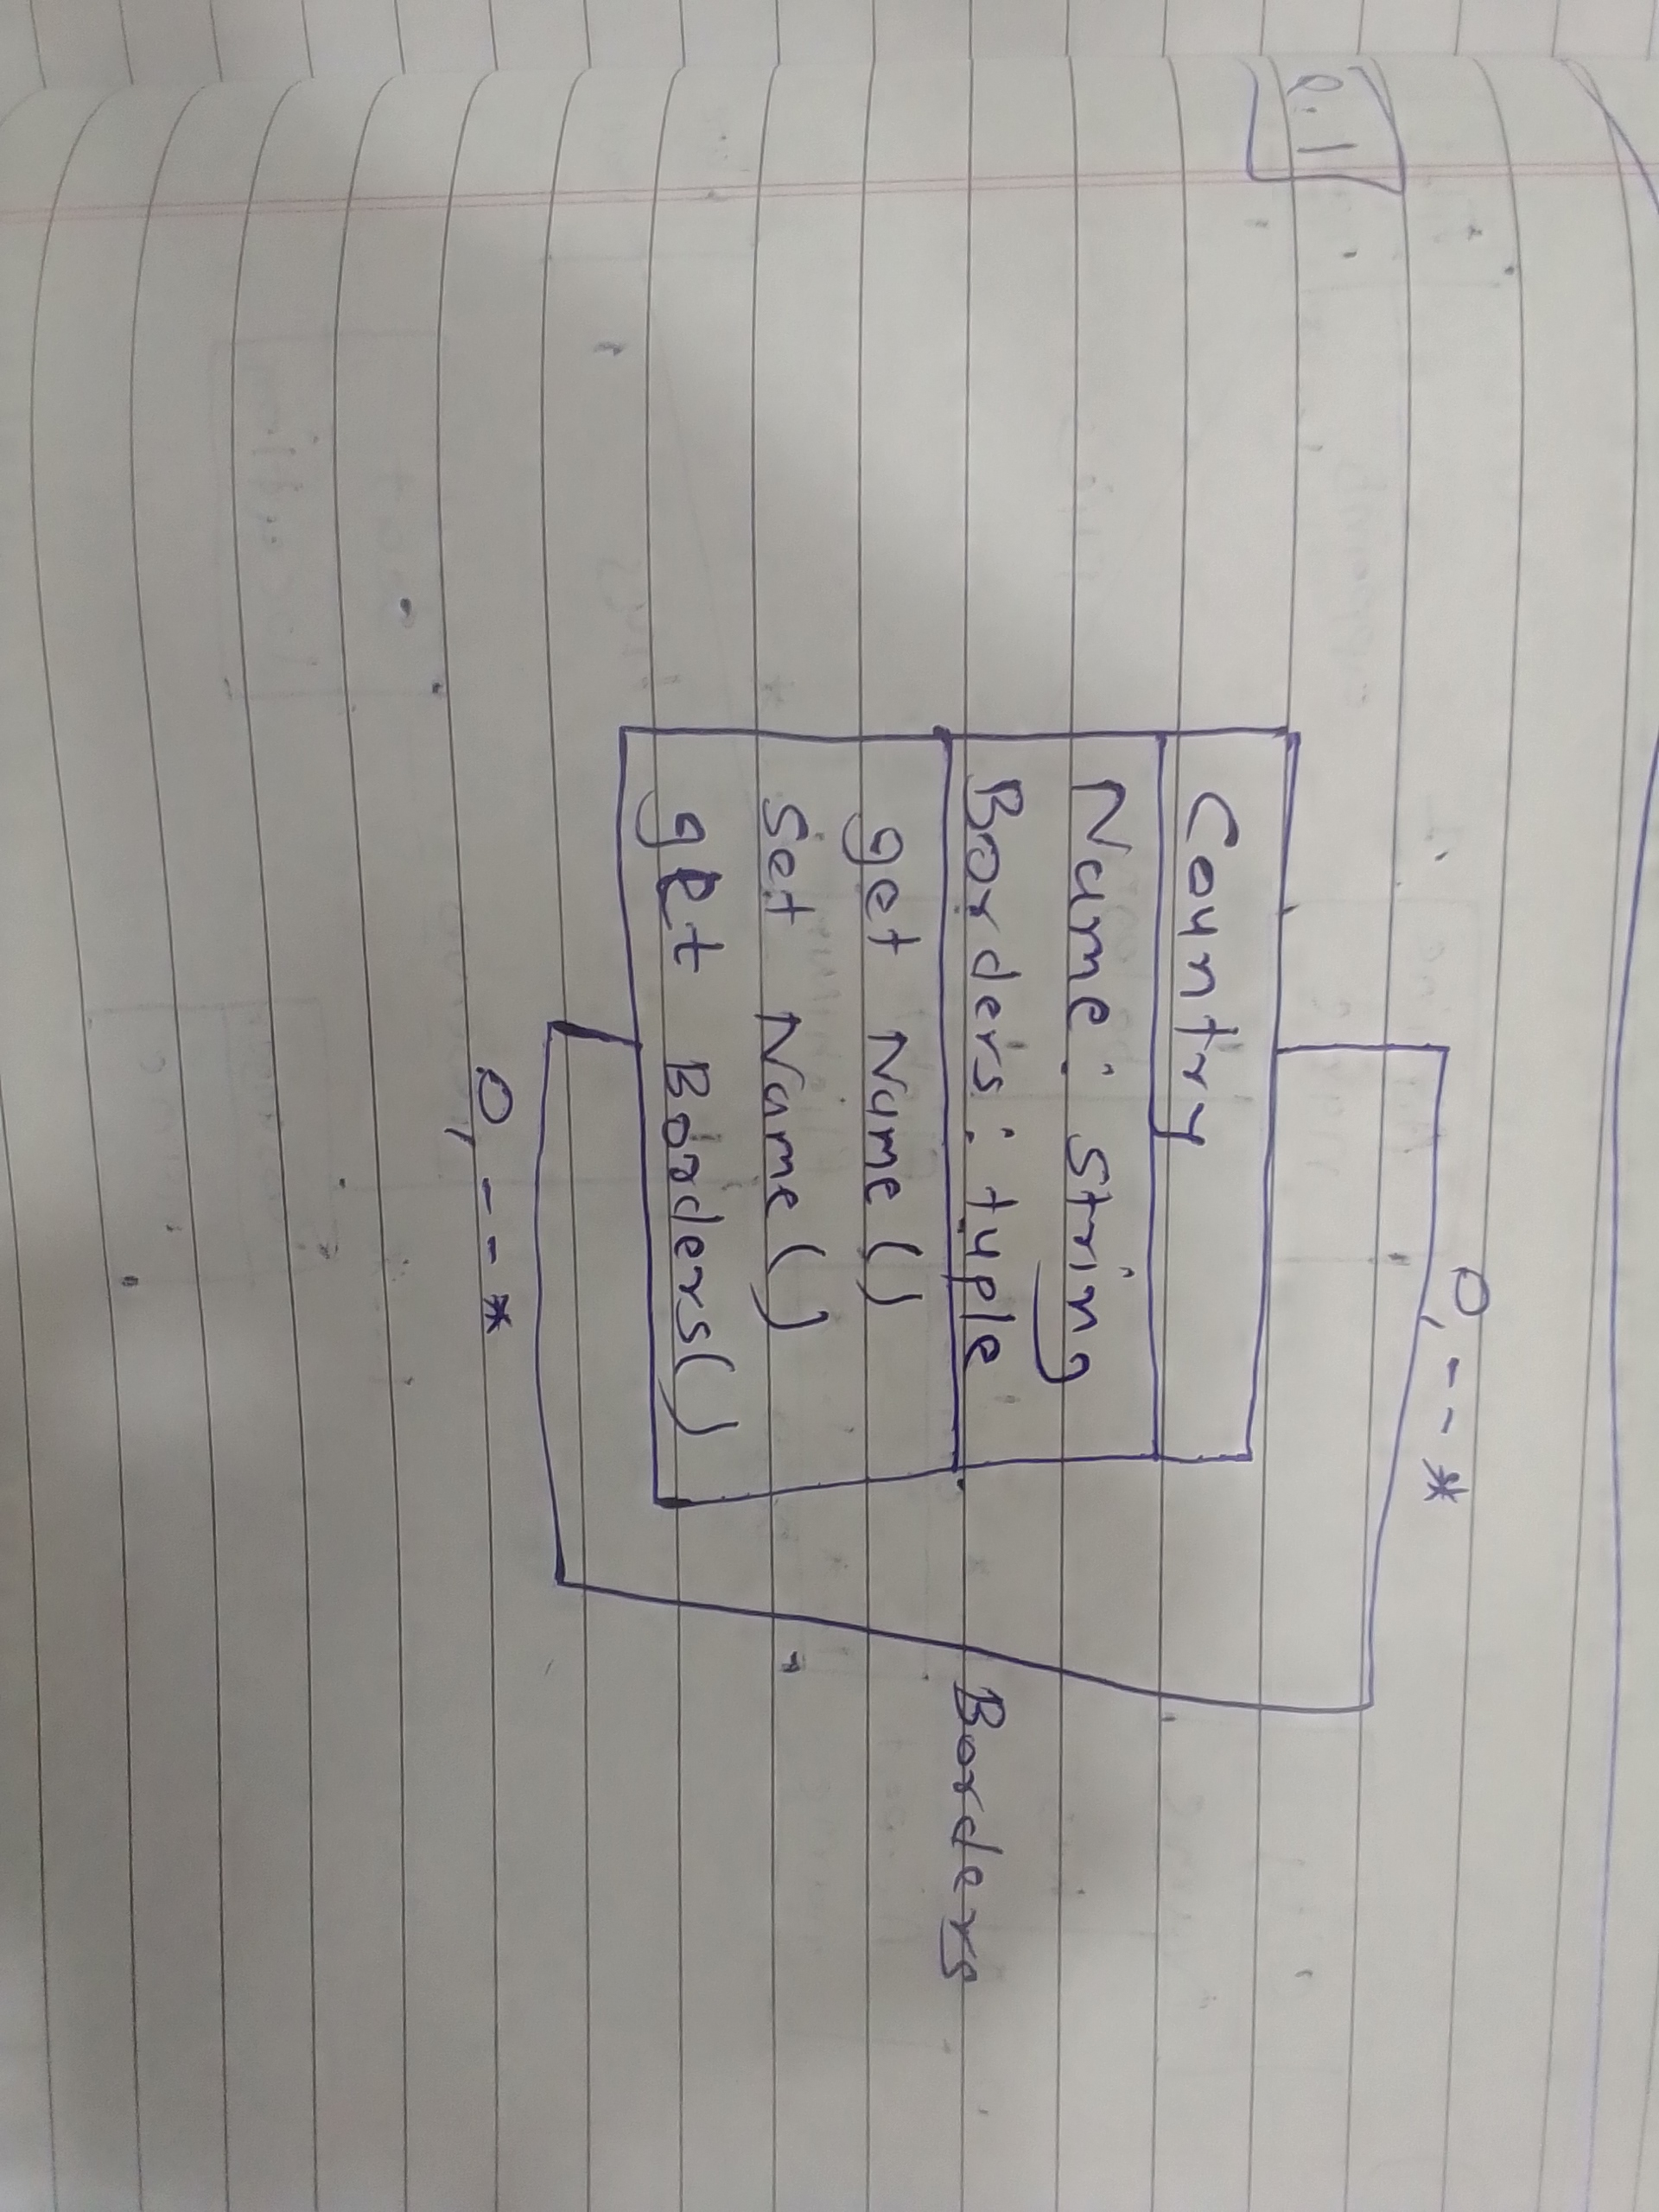 Q.1
0, - - *
Country
Name : String
Borders : tuple
get Name ()
Set Name ()
get Borders ()
Borders
0, - - *